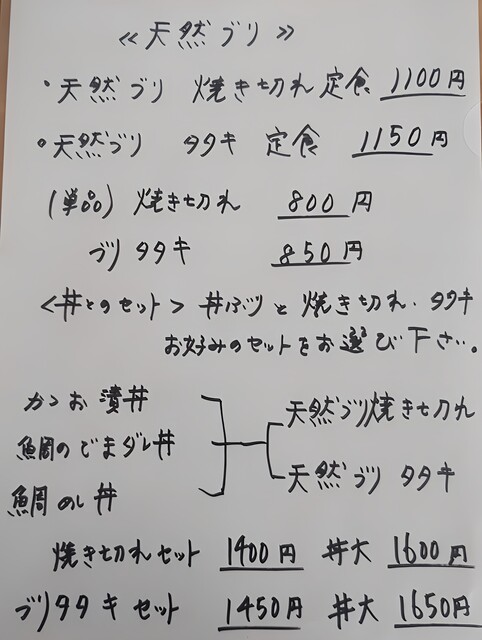 ≪天然ブリ≫
・天然ブリ 焼き切れ定食 1100円
・天然ブリ タタキ 定食 1150円
(単品) 焼き切れ 800円
ブリタタキ 850円
<丼とのセット> 丼ぶりと焼き切れ・タタキ
お好みのセットをお選び下さい。
カツお漬丼
天然ブリ焼き切れ
鯛のごまダレ丼
天然ブリ タタキ
鯛めし丼
焼き切れセット 1400円 丼大 1600円
ブリタタキセット 1450円 丼大 1650円